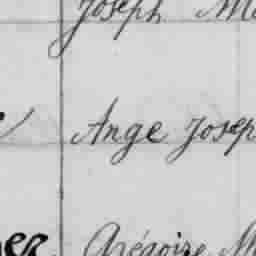 Joseph M
Ange Josep
er Grégoire M